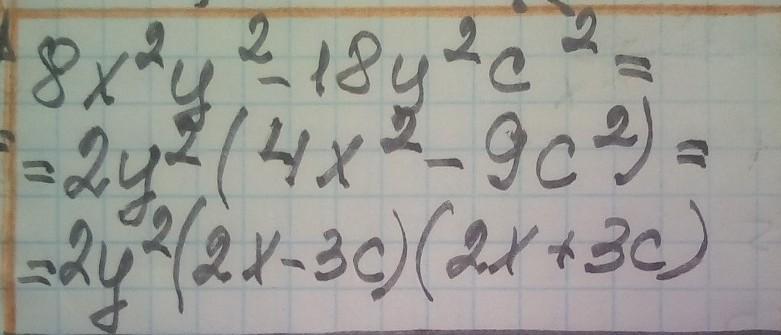 8x²y² - 18y²c² =
= 2y²(4x² - 9c²) =
= 2y²(2x - 3c)(2x + 3c)